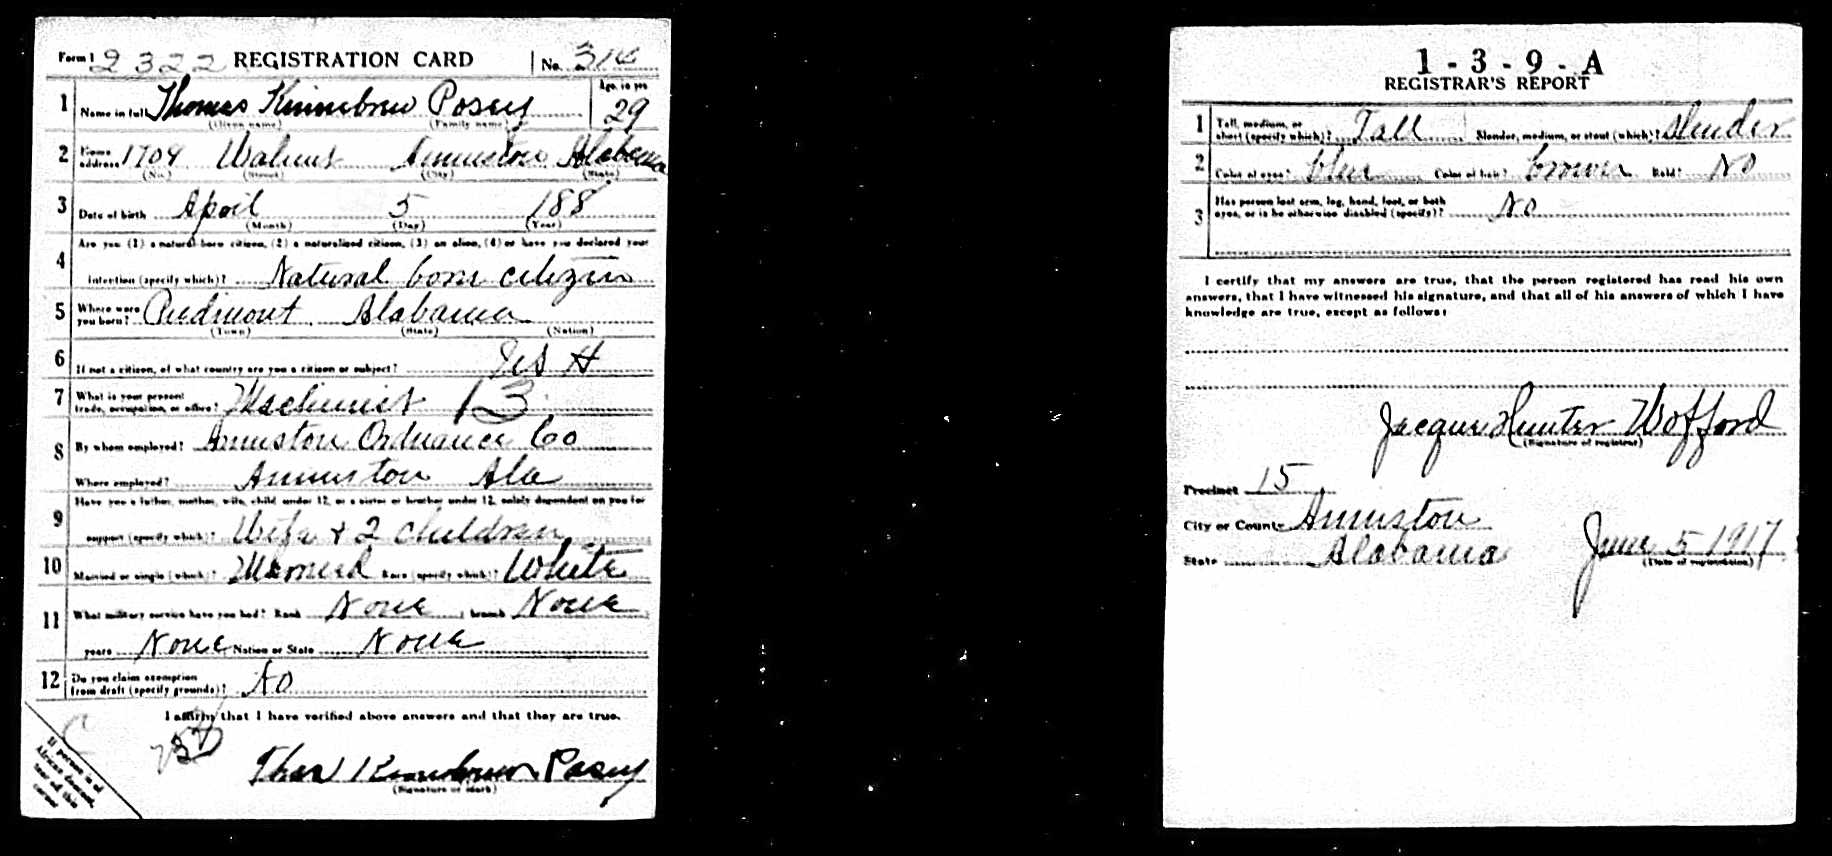 Form 1 2322 REGISTRATION CARD No. 314
1 Name in full Thomas Kinnebrew Posey Age, in yrs 29
(Given name) (Family name)
2 Home address 1704 Walnut Anniston Alabama
(No.) (Street) (City) (State)
3 Date of birth April 5 188
(Month) (Day) (Year)
4 Are you (1) a natural-born citizen, (2) a naturalized citizen, (3) an alien, (4) or have you declared your
intention (specify which)? Natural born citizen
5 Where were you born? Piedmont Alabama
(Town) (State) (Nation)
6 If not a citizen, of what country are you a citizen or subject?
7 What is your present trade, occupation, or office? Machinist 13
8 By whom employed? Anniston Ordnance Co
Where employed? Anniston Ala
9 Have you a father, mother, wife, child under 12, or a sister or brother under 12, solely dependent on you for
support (specify which)? Wife & 2 children
10 Married or single (which)? Married Race (specify which)? White
11 What military service have you had? Rank None ; branch None
years None Nation or State None
12 Do you claim exemption from draft (specify grounds)? No
I affirm that I have verified above answers and that they are true.
Thos Kinnebrew Posey
(Signature or mark)
If person is of
African descent,
tear off this
corner
1-3-9-A
REGISTRAR'S REPORT
1 Tall, medium, or short (specify which)? Tall Slender, medium, or stout (which)? Slender
2 Color of eyes? Blue Color of hair? brown Bald? No
3 Has person lost arm, leg, hand, foot, or both eyes, or is he otherwise disabled (specify)? No
I certify that my answers are true, that the person registered has read his own
answers, that I have witnessed his signature, and that all of his answers of which I have
knowledge are true, except as follows:
Jacque Hunter Wofford
(Signature of registrar)
Precinct 15
City or County Anniston
State Alabama June 5 1917
(Date of registration)